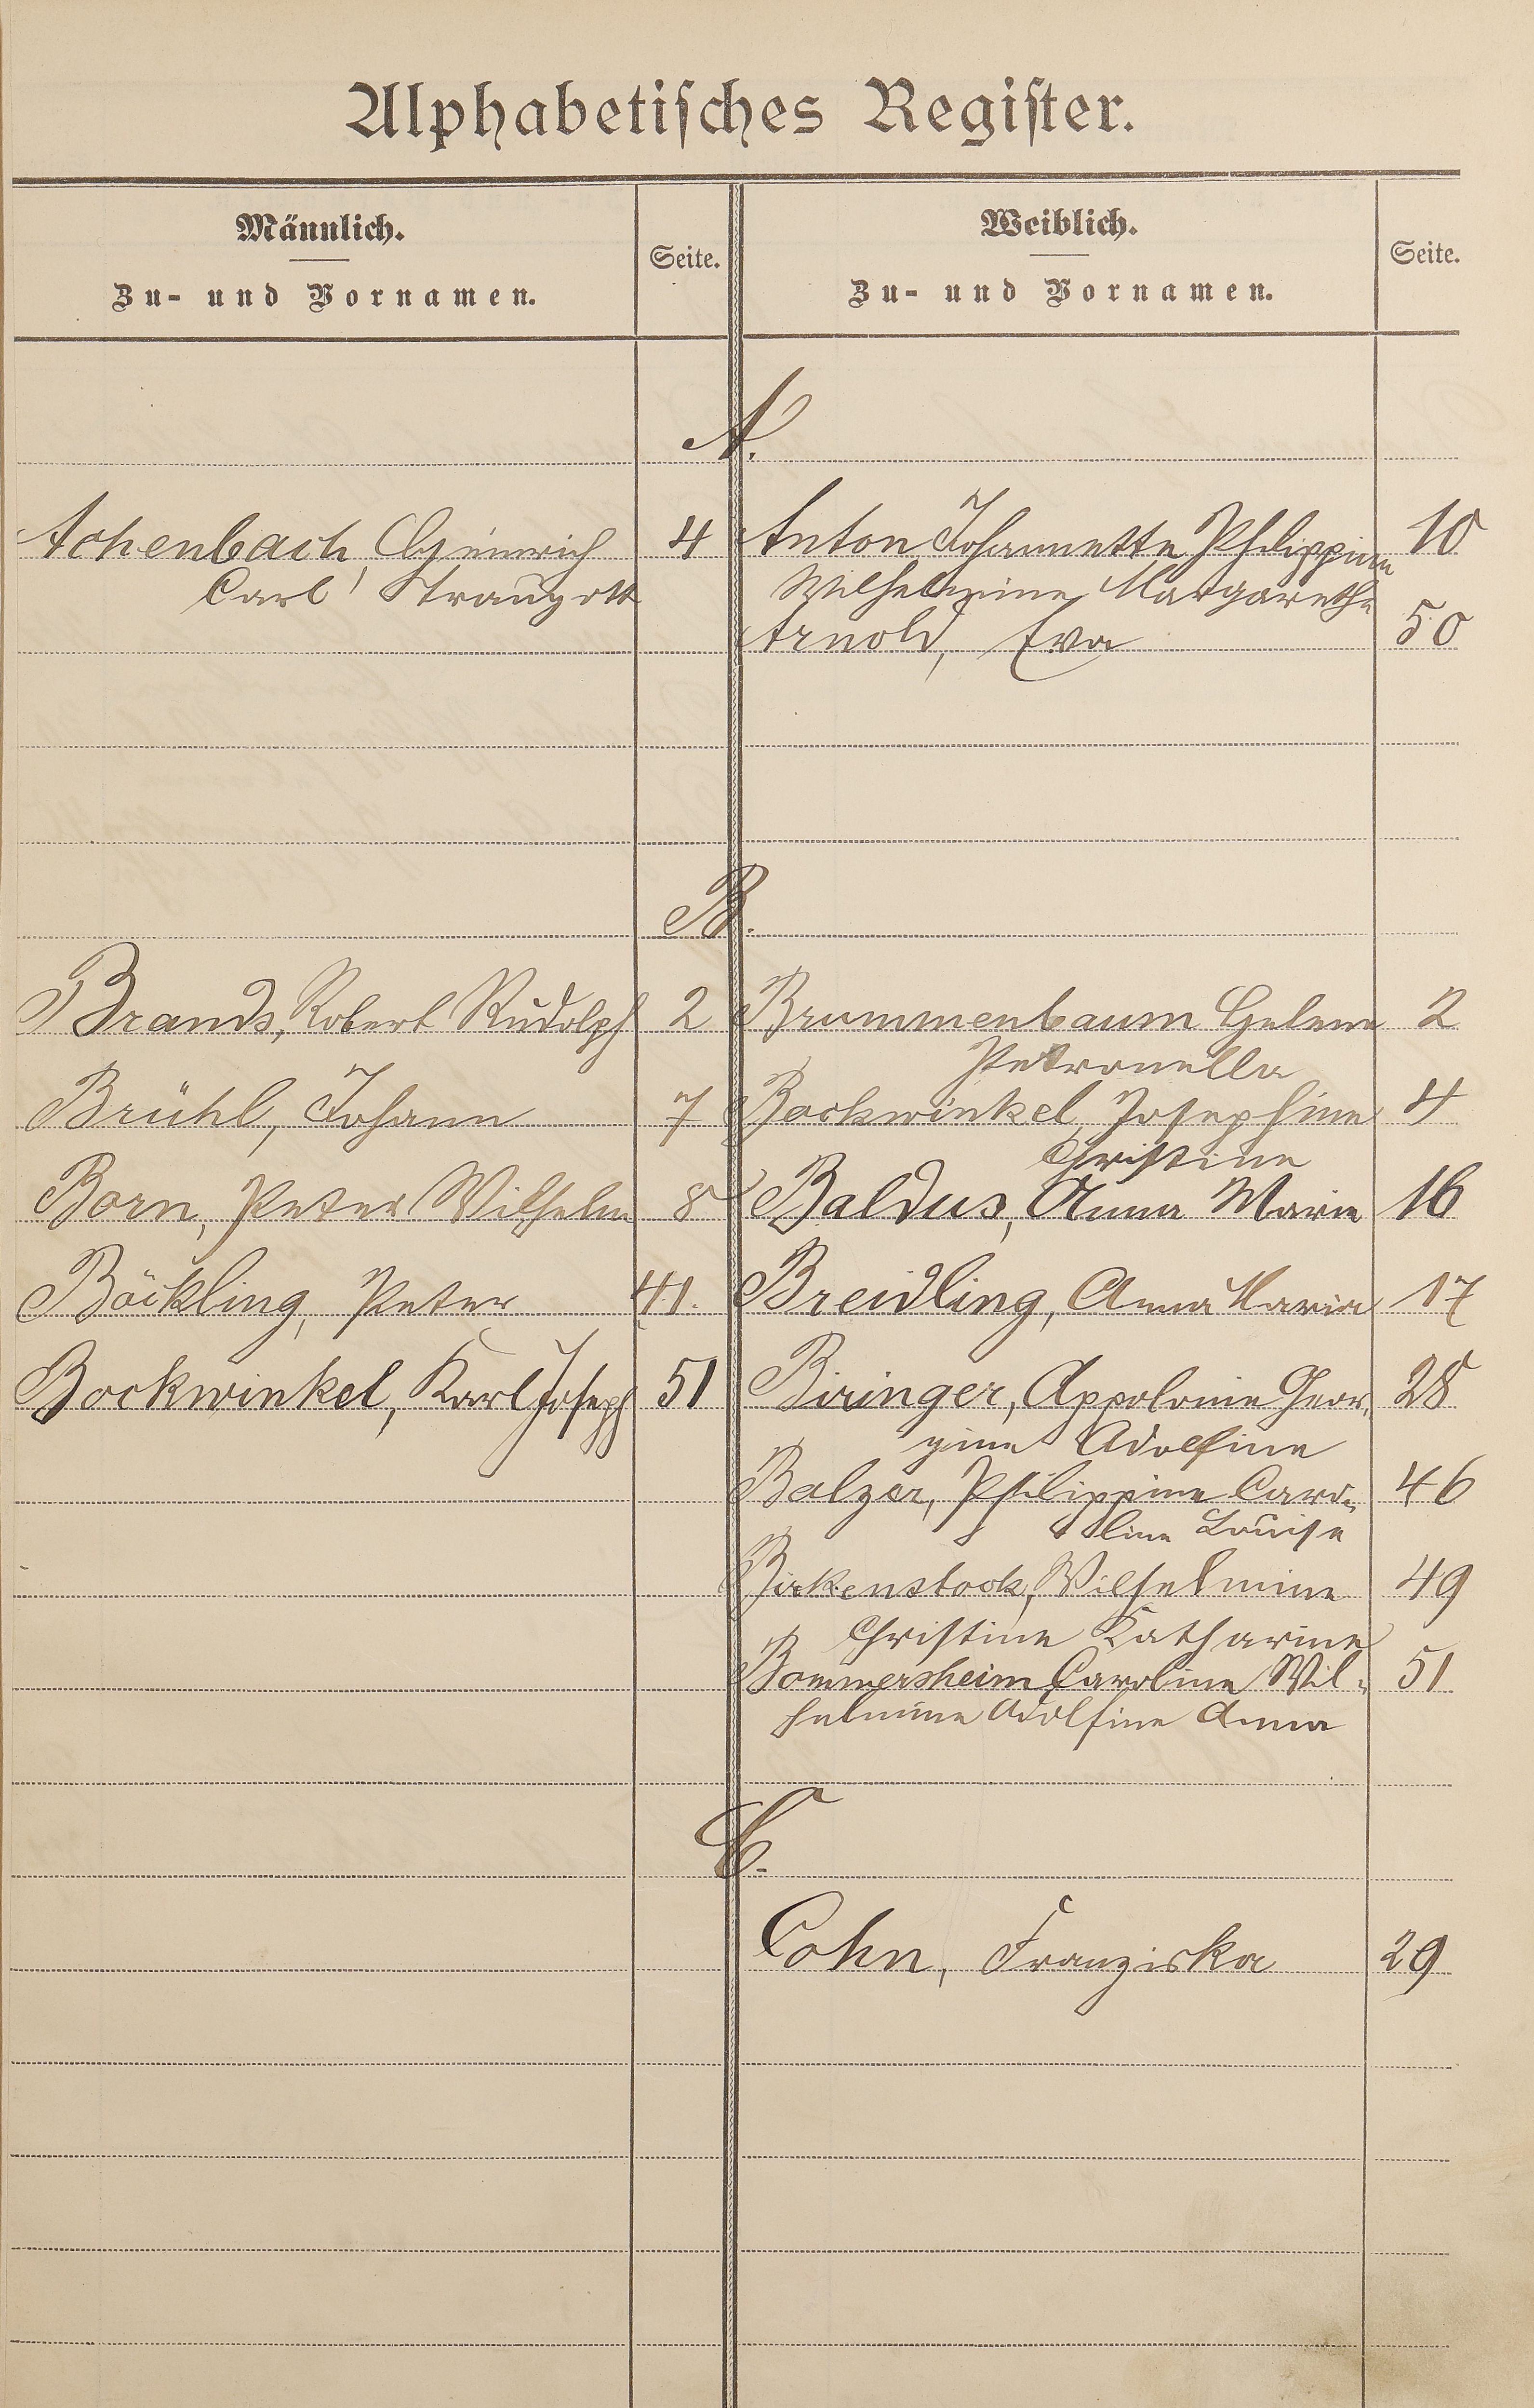 Alphabetisches Register.
Männlich.
Zu- und Vornamen.
Seite.
Weiblich.
Zu- und Vornamen.
Seite.
A.
Achenbach, Heinrich 4
Carl Traugott
Anton Johannette Philippine 10
Wilhelmine Margarethe
Arnold, Eva 50
B.
Brands, Robert Rudolph 2
Brühl, Johann 7
Born, Peter Wilhelm 8
Böckling, Peter 41.
Bockwinkel, Karl Joseph 51
Brummenbaum Helene 2
Petronella
Bockwinkel, Josephine 4
Christine
Baldus, Anna Maria 16
Breidling, Anna Maria 17
Biringer, Appolonie Geor- 28
gine Adolfine
Balzer, Philippine Caro- 46
line Louise
Birkenstock, Wilhelmine 49
Christine Katharine
Bommersheim, Caroline Wil- 51
helmine Adolfine Anna
C.
Cohn, Franziska 29